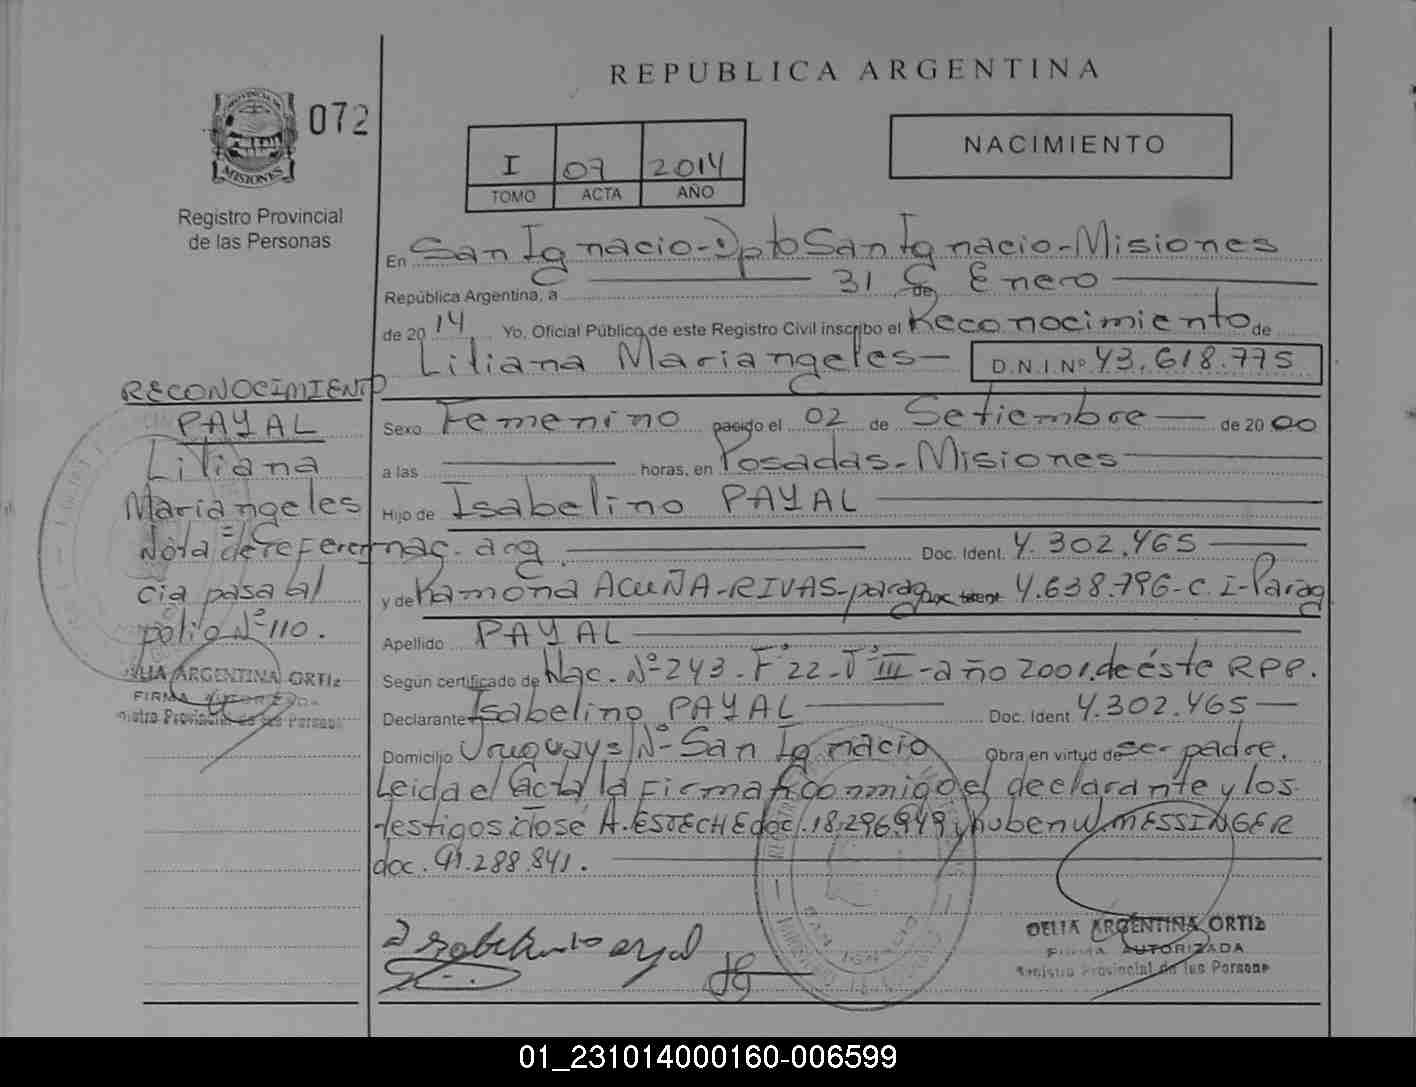 REPUBLICA ARGENTINA
PROVINCIA DE
MISIONES
072
Registro Provincial
de las Personas
I 07 2014
TOMO ACTA AÑO
NACIMIENTO
En San Ignacio - Dpto San Ignacio - Misiones
República Argentina, a 31 de Enero
de 2014 Yo, Oficial Público de este Registro Civil inscribo el Reconocimiento de
Liliana Mariangeles - D.N.I.Nº 43.618.775
Sexo Femenino nacido el 02 de Setiembre de 2000
a las horas, en Posadas - Misiones
Hijo de Isabelino PAYAL
nac. arg. Doc. Ident. 4.302.465
y de Ramona ACUÑA - RIVAS - parag Doc. Ident 4.638.796 - C. I - Parag
Apellido PAYAL
Según certificado de Nac. Nº 243 - Fº 22 - Tº III - año 2001. de éste RPP.
Declarante Isabelino PAYAL Doc. Ident 4.302.465
Domicilio Uruguay s/Nº - San Ignacio Obra en virtud de ser padre.
Leida el Acta la Firman conmigo el declarante y los
testigos: Jose A. ESTECHE doc. 18.296.949 y Ruben W. MESSINGER
doc. 91.288.841.
DELIA ARGENTINA ORTIZ
FIRMA AUTORIZADA
Registro Provincial de las Personas
RECONOCIMIENTO
PAYAL
Liliana
Mariangeles
Nota de referen
cia pasa al
folio Nº 110.
DELIA ARGENTINA ORTIZ
FIRMA AUTORIZADA
Registro Provincial de las Personas
01_231014000160-006599